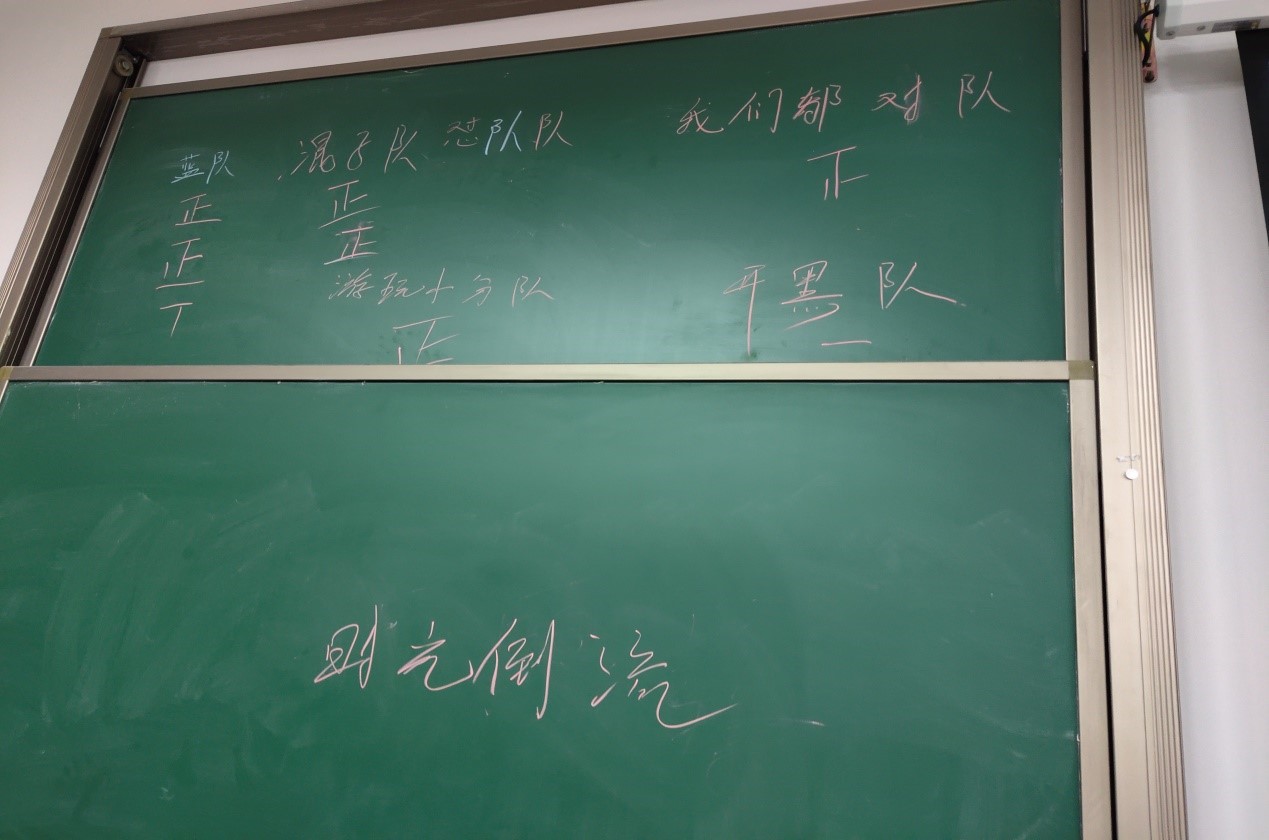 蓝队 混子队 怼队队 我们都对队
正 正 正
正 正
丅
游玩小分队 开黑队
正 一
时光倒流